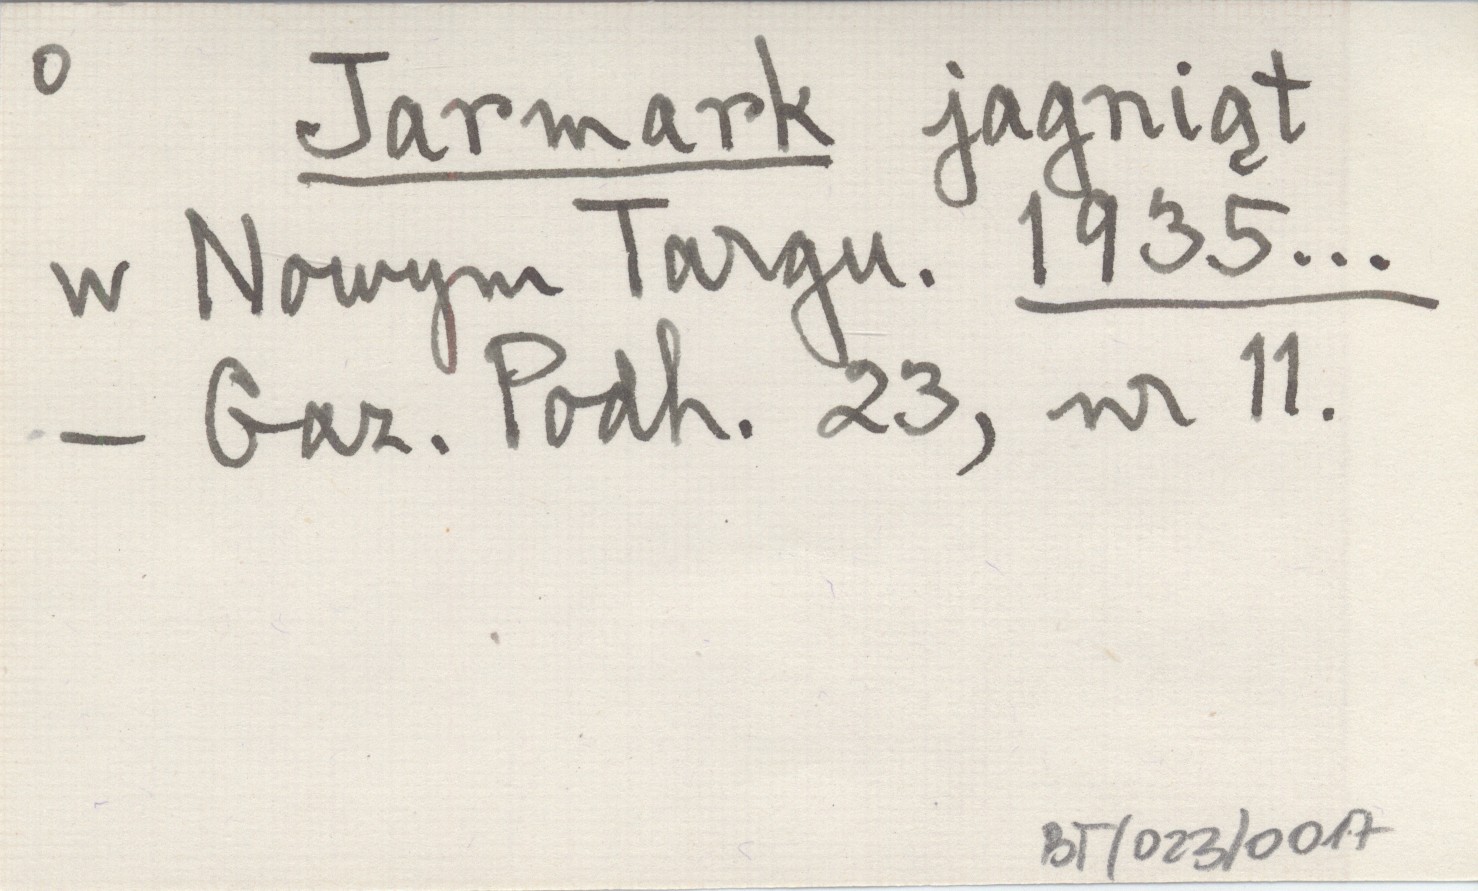 o Jarmark jagniąt
w Nowym Targu. 1935...
– Gaz. Podh. 23, nr 11.
BT/023/0017